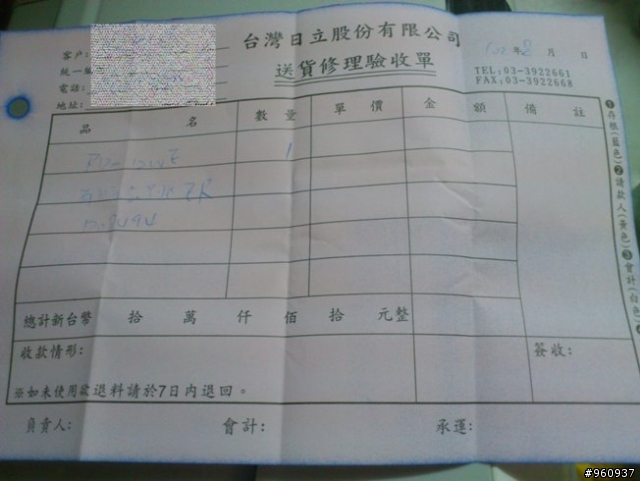 台灣日立股份有限公司
送貨修理驗收單
客戶:
統一編
電話:
地址:
年 8 月 日
TEL:03-3922661
FAX:03-3922668
品 名 數 量 單 價 金 額 備 註
1
總計新台幣 拾 萬 仟 佰 拾 元整
收款情形: 簽收:
※如未使用欲退料請於7日內退回。
負責人: 會計: 承運:
①存根(藍色)②請款人(黃色)③會計(白色)
#960937